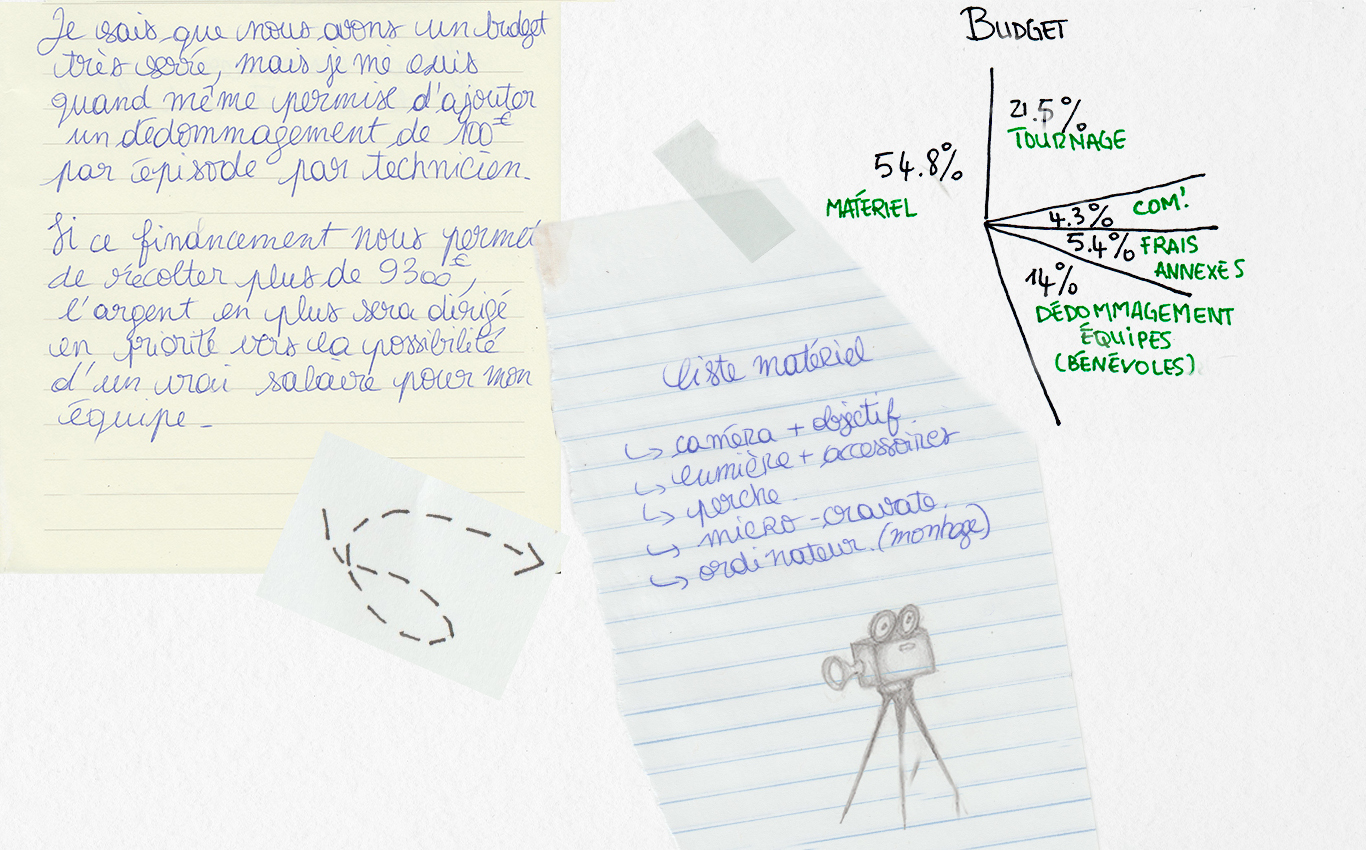 Je sais que nous avons un budget
très serré, mais je me suis
quand même permise d'ajouter
un dédommagement de 100€
par épisode par technicien.
Si ce financement nous permet
de récolter plus de 9300€,
l'argent en plus sera dirigé
en priorité vers la possibilité
d'un vrai salaire pour mon
équipe.
liste matériel
↳ caméra + objectif.
↳ lumière + accessoires
↳ perche.
↳ micro-cravate.
↳ ordinateur. (montage)
BUDGET
21.5%
TOURNAGE
54.8%
MATÉRIEL
4.3% COM'.
5.4% FRAIS
ANNEXES
14%
DÉDOMMAGEMENT
ÉQUIPES
(BÉNÉVOLES)